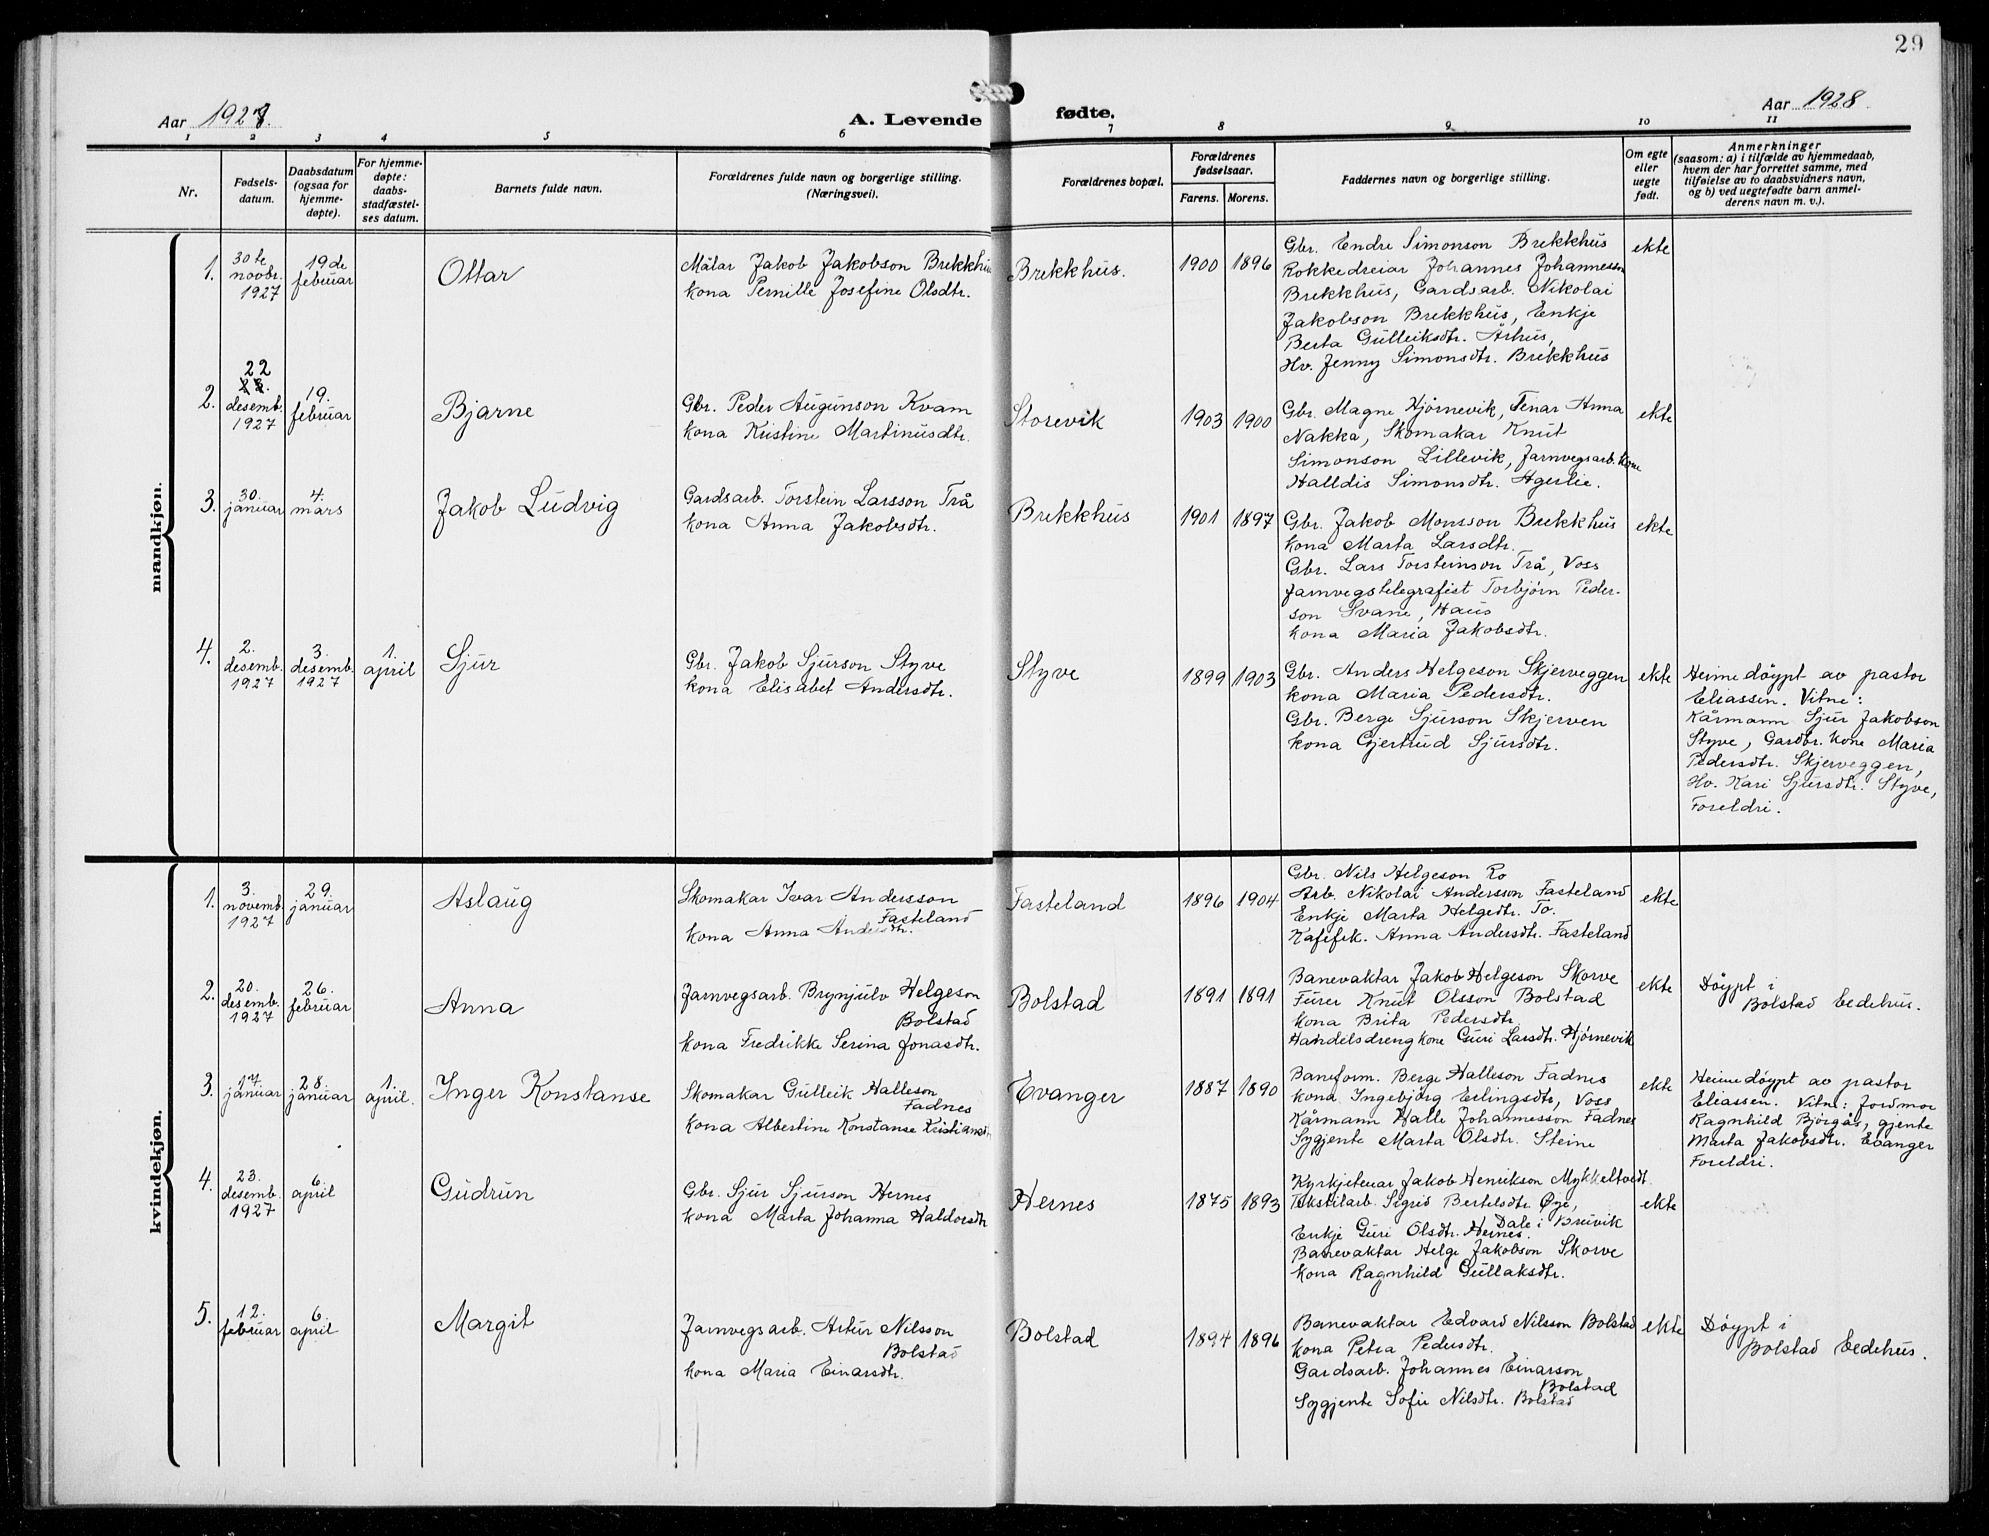 29
Aar 1928.
A. Levende
fødte.
Aar 1928.
1 2 3 4 5 6 7 8 9 10 11
Nr.
Fødsels-
datum.
Daabsdatum
(ogsaa for
hjemme-
døpte).
For hjemme-
døpte:
daabs-
stadfæstel-
ses datum.
Barnets fulde navn.
Forældrenes fulde navn og borgerlige stilling.
(Næringsvei).
Forældrenes bopæl.
Forældrenes
fødselsaar.
Farens. Morens.
Faddernes navn og borgerlige stilling.
Om egte
eller
uegte
født.
Anmerkninger
(saasom: a) i tilfælde av hjemmedaab,
hvem der har forrettet samme, med
tilføielse av to daabsvidners navn,
og b) ved uegtefødte barn anmel-
derens navn m. v.).
mandkjøn.
1.
30te
novbr.
1927
19de
februar
Ottar
Målar Jakob Jakobson Brekkhus
kona Pernille Josefine Olsdtr.
Brekkhus.
1900 1896
Gbr. Endre Simonson Brekkhus
Rokkedreiar Johannes Johannesson
Brekkhus, Gardsarb. Nikolai
Jakobson Brekkhus, Enkje
Berta Gulleiksdtr. Århus,
Hv. Jenny Simonsdtr. Brekkhus
ekte
2.
22
desemb.
1927
19.
februar
Bjarne
Gbr. Peder Augunson Kvam
kona Kristine Martinusdtr.
Storevik
1903 1900
Gbr. Magne Hjørnevik, Tenar Anna
Nakka, Skomakar Knut
Simonson Lillevik, Jarnvegsarb. kone
Halldis Simonsdtr. Agerlie.
ekte
3.
30.
januar
4.
mars
Jakob Ludvig
Gardsarb. Torstein Larsson Trå
kona Anna Jakobsdtr.
Brekkhus
1901 1897
Gbr. Jakob Monsson Brekkhus
kona Marta Larsdtr.
Gbr. Lars Torsteinson Trå, Voss
Jarnvegstelegrafist Torbjørn Peder-
son Svane, Haus
kona Maria Jakobsdtr.
ekte
4.
2.
desemb.
1927
3.
desemb.
1927
1.
april
Sjur
Gbr. Jakob Sjurson Styve
kona Elisabet Andersdtr.
Styve
1899 1903
Gbr. Anders Helgeson Skjerveggen
kona Maria Pedersdtr.
Gbr. Berge Sjurson Skjerven
kona Gjertrud Sjursdtr.
ekte
Heimedøypt av pastor
Eliassen. Vitne:
Kårmann Sjur Jakobson
Styve, Gardbr. kone Maria
Pedersdtr. Skjerveggen,
Hv. Kari Sjursdtr. Styve,
Foreldri.
kvindekjøn.
1.
3.
novemb.
1927
29.
januar
Aslaug
Skomakar Ivar Andersson
Fasteland
kona Anna Andersdtr.
Fasteland
1896 1904
Gbr. Nils Helgeson Ro
Arb. Nikolai Andersson Fasteland
Enkje Marta Helgedtr. To.
Kafefrk. Anna Andersdtr. Fasteland
ekte
2.
20.
desemb.
1927
26.
februar
Anna
Jarnvegsarb. Brynjulv Helgeson
Bolstad
kona Fredrikke Serina Jonasdtr.
Bolstad
1891 1891
Banevaktar Jakob Helgeson Skorve
Fürer Knut Olsson Bolstad
kona Brita Pedersdtr.
Handelsdreng kone Guri Larsdtr. Hjørnevik
ekte
Døypt i
Bolstad bedehus.
3.
17.
januar
28.
januar
1.
april.
Inger Konstanse
Skomakar Gulleik Halleson
Fadnes
kona Albertine Konstanse Kristiansdtr
Evanger
1887 1890
Baneform. Berge Halleson Fadnes
kona Ingebjørg Erlingsdtr, Voss
Kårmann Halle Johannesson Fadnes
Sygjente Marta Olsdtr. Steine
ekte
Heimedøypt av pastor
Eliassen. Vitne: Jordmor
Ragnhild Bjørgås, gjente
Marta Jakobsdtr. Evanger
Foreldri.
4.
23.
desemb.
1927
6.
april
Gudrun
Gbr. Sjur Sjurson Hernes
kona Marta Johanna Haldorsdtr
Hernes
1875 1893
Kyrkjetenar Jakob Henrikson Mykkeltvedt.
Tekstilarb. Sigrid Bertelsdtr. Øye,
Dale i Breivik
Enkje Guri Olsdtr. Hernes.
Banevaktar Helge Jakobson Skorve
kona Ragnhild Gullaksdtr.
ekte
5.
12.
februar
6.
april
Margit
Jarnvegsarb. Artur Nilsson
Bolstad
kona Maria Einarsdtr.
Bolstad
1894 1896
Banevaktar Edvard Nilsson Bolstad
kona Petra Pedersdtr.
Gardsarb. Johannes Einarson
Bolstad
Sygjente Sofie Nilsdtr. Bolstad
ekte
Døypt i
Bolstad bedehus.